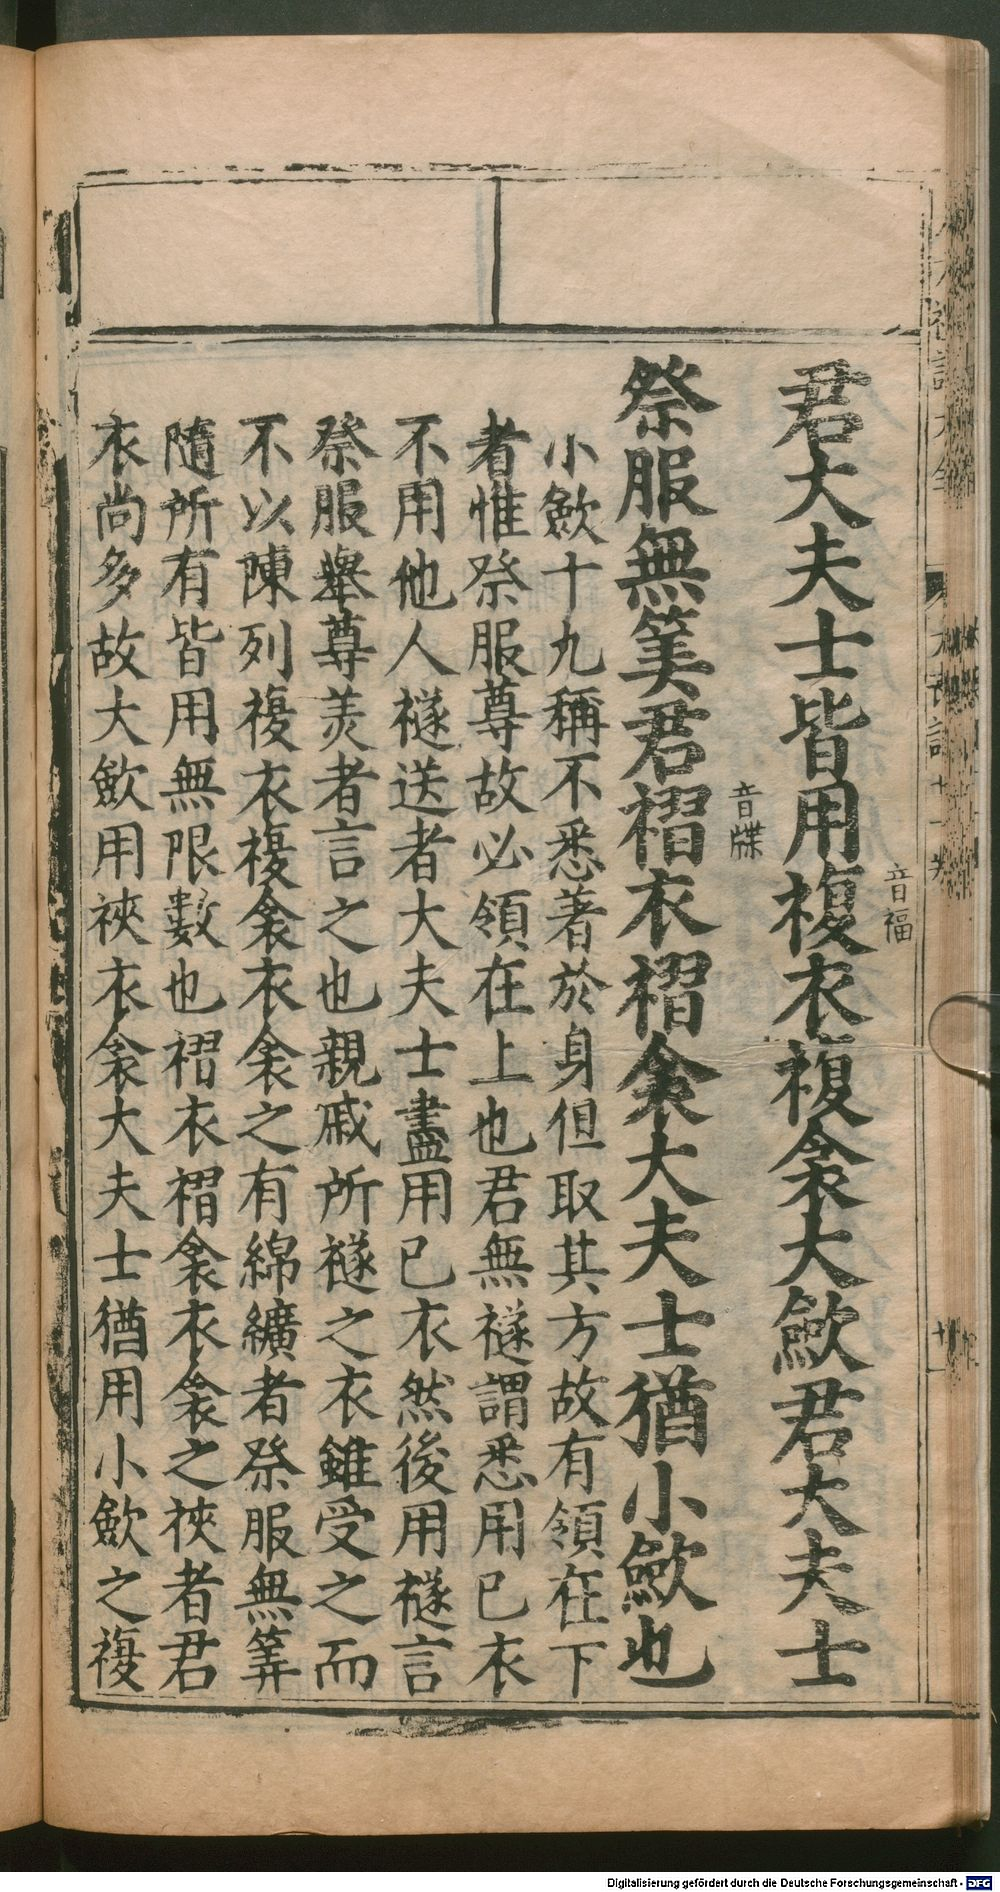 君大夫士皆用複衣複衾大斂君大夫士
音福
祭服無筭君褶衣褶衾大夫士猶小斂也
音牒
小斂十九稱不悉著於身但取其方故有領在下
者惟祭服尊故必領在上也君無襚謂悉用已衣
不用他人襚送者大夫士盡用已衣然後用襚言
祭服舉尊美者言之也親戚所襚之衣雖受之而
不以陳列複衣複衾衣衾之有綿纊者祭服無筭
隨所有皆用無限數也褶衣褶衾衣衾之裌者君
衣尚多故大斂用裌衣衾大夫士猶用小斂之複
Digitalisierung gefördert durch die Deutsche Forschungsgemeinschaft - DFG